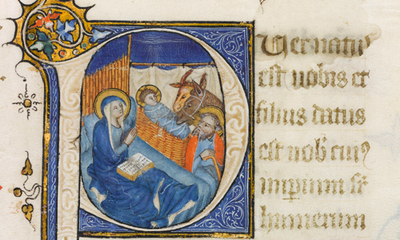 Puer natus
est nobis et
filius datus
est nob̄ cui9
imperium sr̄
humerum